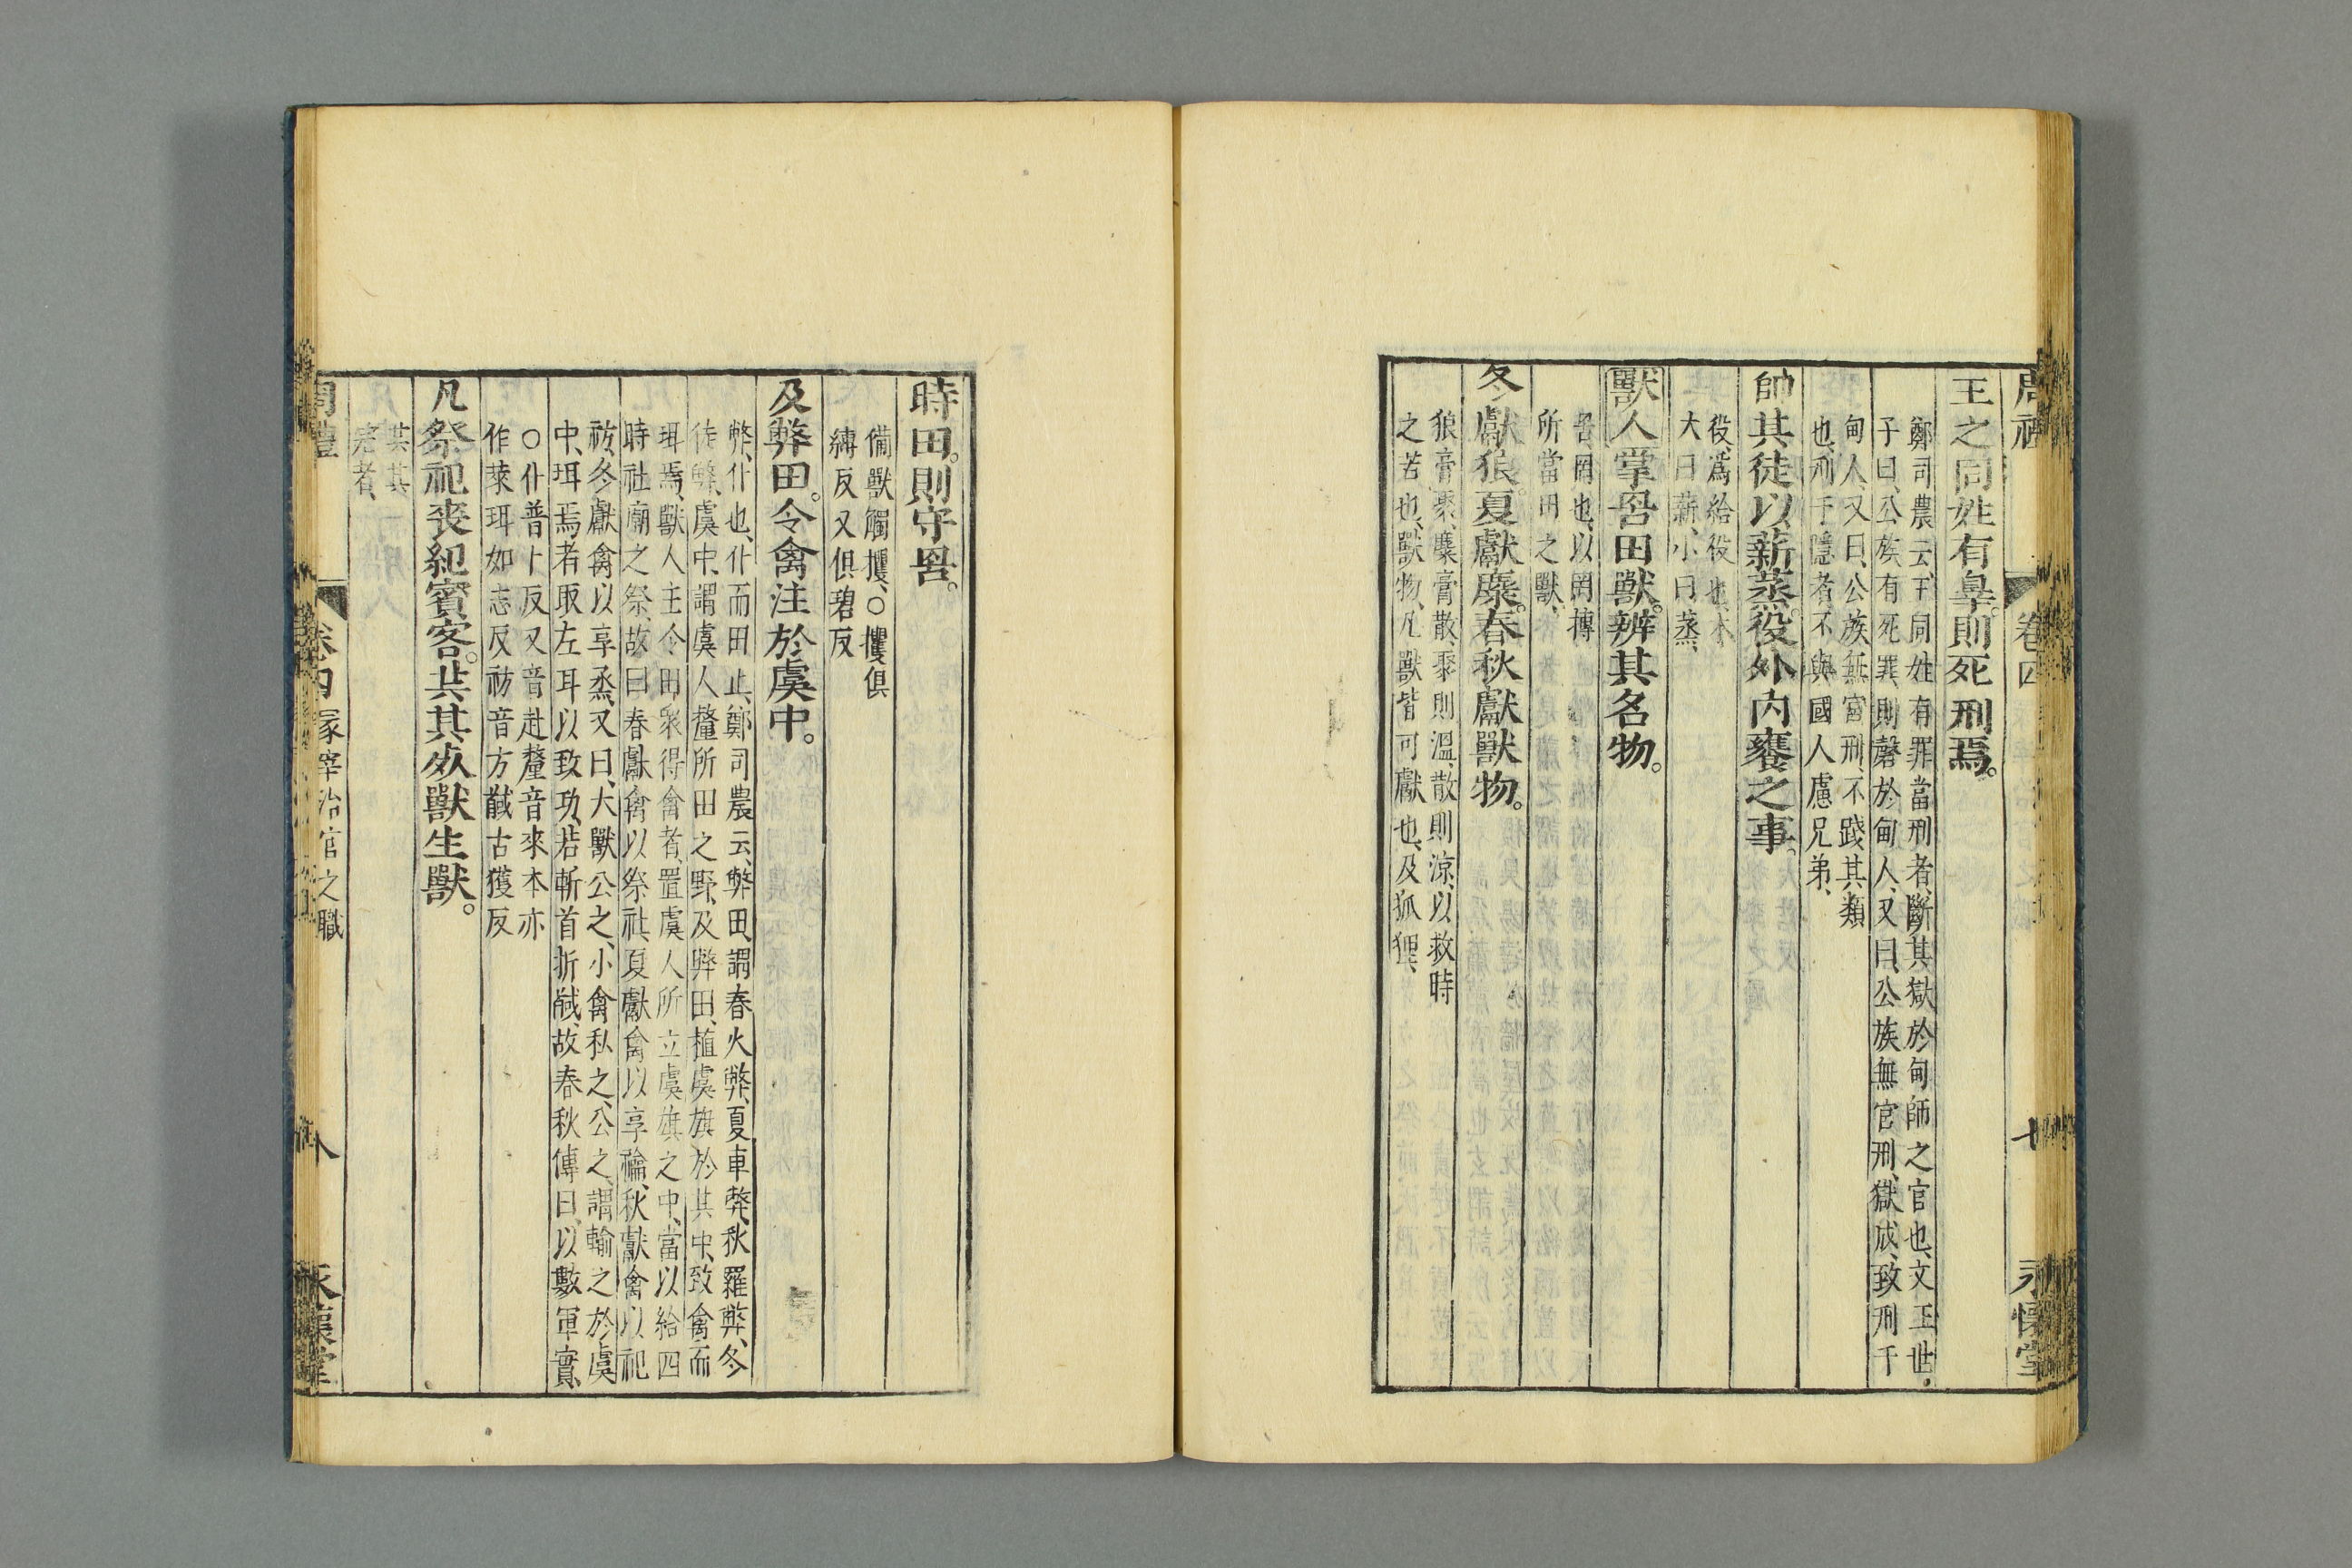 周禮 卷四 七 永懷堂
王之同姓有辠。則死刑焉。
鄭司農云、王同姓有罪當刑者、斷其獄於甸師之官也、文王世
子曰、公族有死罪、則磬於甸人、又曰、公族無宮刑、獄成、致刑于
甸人、又曰、公族無宮刑、不踐其類
也、刑于隱者、不與國人慮兄弟、
帥其徒以薪蒸。役外內饔之事。
役、爲給役也、木
大曰薪、小曰蒸、
獸人掌罟田獸。辨其名物。
罟、罔也、以罔搏
所當田之獸、
冬獻狼。夏獻麋。春秋獻獸物。
狼膏聚、麋膏散、聚則溫、散則涼、以救時
之苦也、獸物、凡獸皆可獻也、及狐狸、
時田。則守罟。
備獸觸攫、○攫俱
縛反又俱碧反
及弊田。令禽注於虞中。
弊、仆也、仆而田止、鄭司農云、弊田、謂春火弊、夏車弊、秋羅弊、冬
徒弊、虞中、謂虞人釐所田之野、及弊田、植虞旗於其中、致禽而
珥焉、獸人主令田衆得禽者、置虞人所立虞旗之中、當以給四
時社廟之祭、故曰春獻禽以祭社、夏獻禽以享礿、秋獻禽以祀
祊、冬獻禽以享烝、又曰、大獸公之、小禽私之、公之、謂輸之於虞
中、珥焉者取左耳以致功、若斬首折馘、故春秋傳曰、以數軍實、
○仆普卜反又音赴釐音來本亦
作萊珥如志反祊音方馘古獲反
凡祭祀喪紀賓客。共其死獸生獸。
共其
完者、
周禮 卷四 冢宰治官之職 八 永懷堂